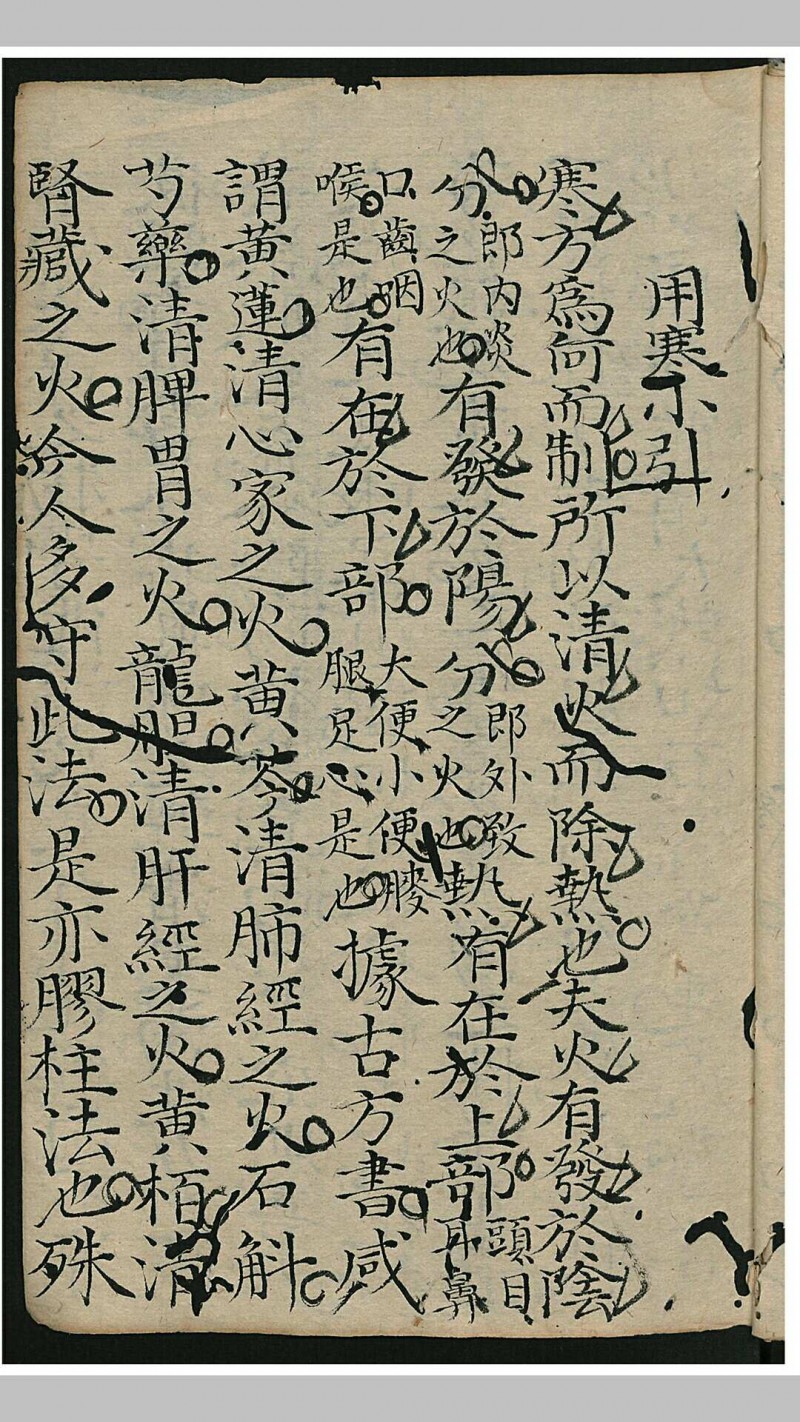 用寒小引
寒方爲何而制所以清火而除熱也夫火有發於陰
分郎内炎之火也有發於陽分郎外致之火也熱有在於上部頭目耳鼻
口齒咽喉是也有在於下部大便小便膝腿足心是也據古方書咸
謂黄蓮清心家之火黄芩清肺經之火石斛
芍藥清脾胃之火龍胆清肝經之火黄栢清
腎藏之火今人多守此法是亦膠柱法也殊